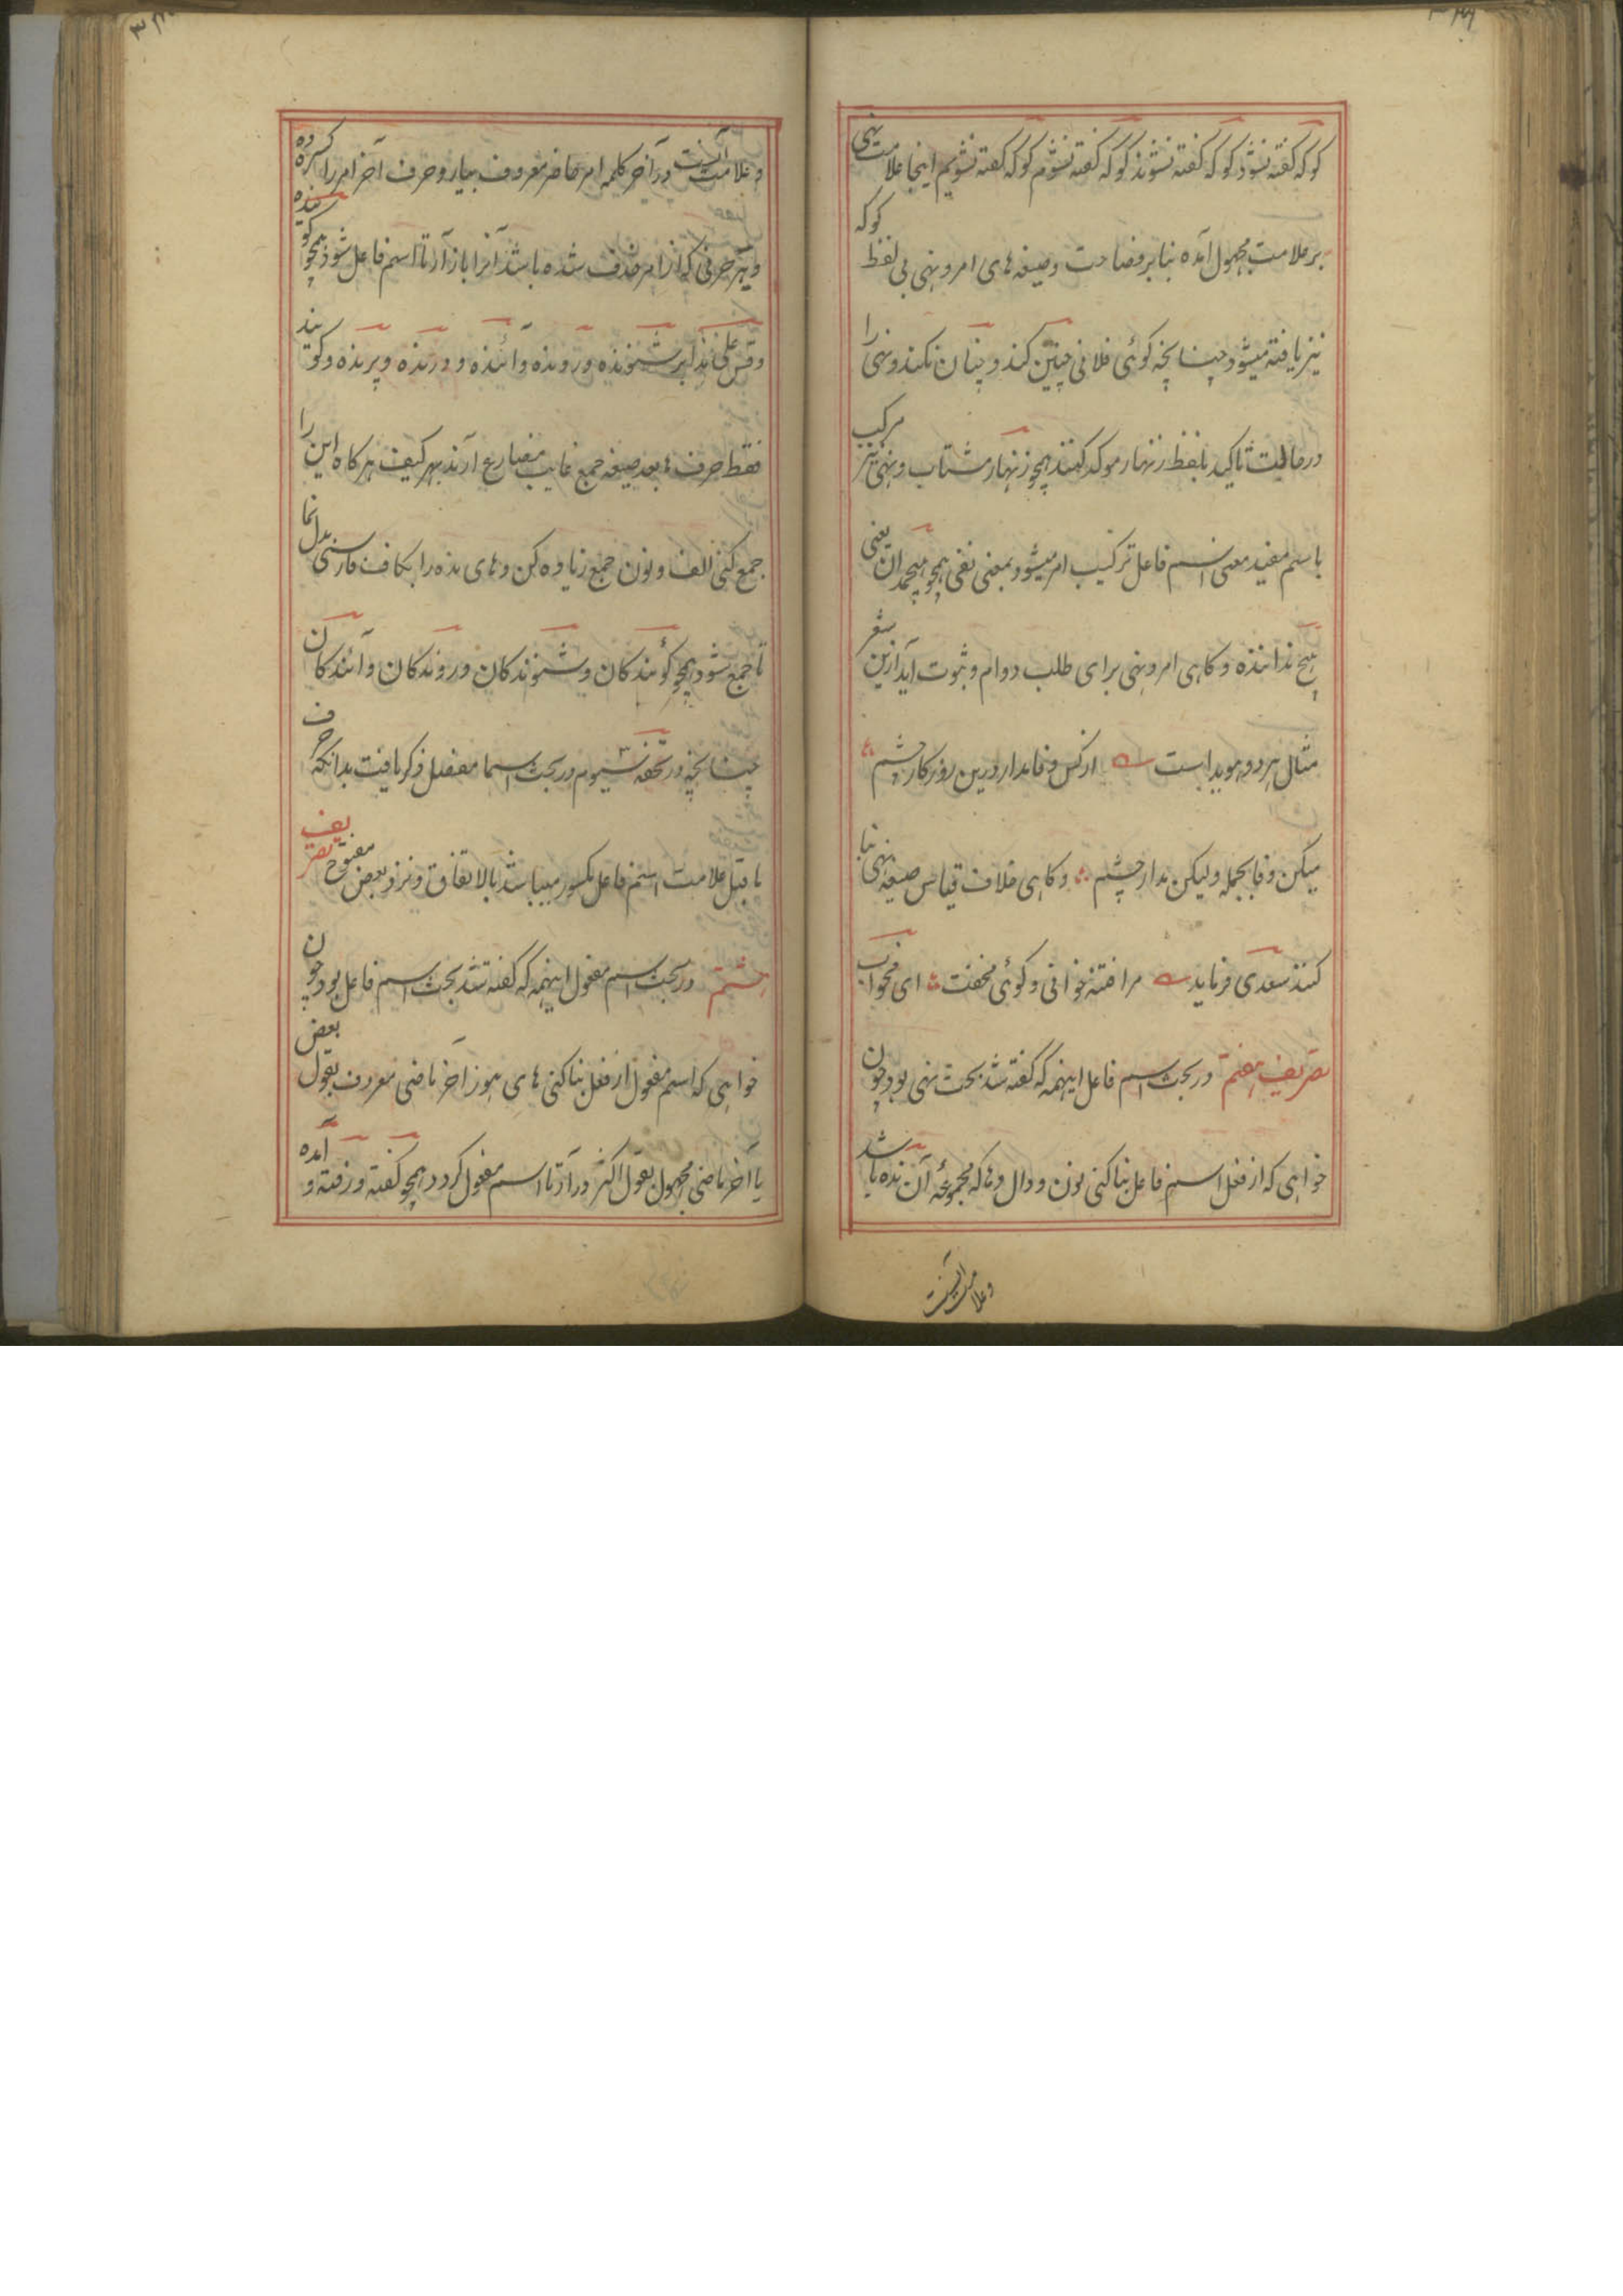 گو که گفته نشود گو که گفته نشوند گو که گفته نشوم گو که گفته نشویم اینجا علامت نهی
بر علامت مجهول آمده بنا بر فصاحت و صیغه های امر و نهی بی لفظ گو که
نیز یافته میشود چنانچه گوئی فلانی چنین کند و چنان نکند و نهی را
در حالت تاکید بلفظ زنهار موکد کنند همچو زنهار مشتاب و نهی نیز مرکب
با سم مفید معنی اسم فاعل ترکیب امر میشود بمعنی نفی همچو هیچمدان یعنی
هیچ نداننده و کاهی امر و نهی برای طلب دوام و ثبوت آید ازین شعر
مثال هر دو هویدا است از کس وفا مدار درین روزکار چشم
میکن وفا بجمله ولیکن مدار چشم و کاهی خلاف قیاس صیغه نهی بنا
کنند سعدی فرماید مرا فتنه خوانی و کوئی مخفت ای مخواب
تصریف هفتم در بحث اسم فاعل اینهمه که گفته شد بحث نهی بود چون
خواهی که از فعل اسم فاعل بنا کنی نون و دال و ها که مجموعهٔ آن نده باشد
وعلامت آنست
و علامت آنست در آخر کلمه امر حاضر معروف بیار و حرف آخر امر را کسره ده
و هر حرفی که از امر حذف شده باشد آنرا باز آر تا اسم فاعل شود همچو گوینده
و قس علی هذا بر شنونده و رونده و آئنده و درنده و پرنده و گویند
فقط حرف ها بعد صیغه جمع غایب مضارع آرند بهر کیف هر کاه این را
جمع کنی الف و نون جمع زیاده کن و های نده را بکاف فارسی بدل نما
تا جمع شود همچو گوئندکان و شنوندکان و روندکان و آئندکان
چنانچه در تحفه سیوم در بحث اسما مفصل ذکر یافت بدانکه حرف
ماقبل علامت اسم فاعل مکسور میباشد بالاتفاق و نزد بعض مفتوح تصریف
هشتم در بحث اسم مفعول اینهمه که گفته شد بحث اسم فاعل بود چون
خواهی که اسم مفعول از فعل بنا کنی های هوز آخر ماضی معروف بقول بعض
یا آخر ماضی مجهول بقول اکثر در آر تا اسم مفعول کردد همچو گفته و رفته و آمده